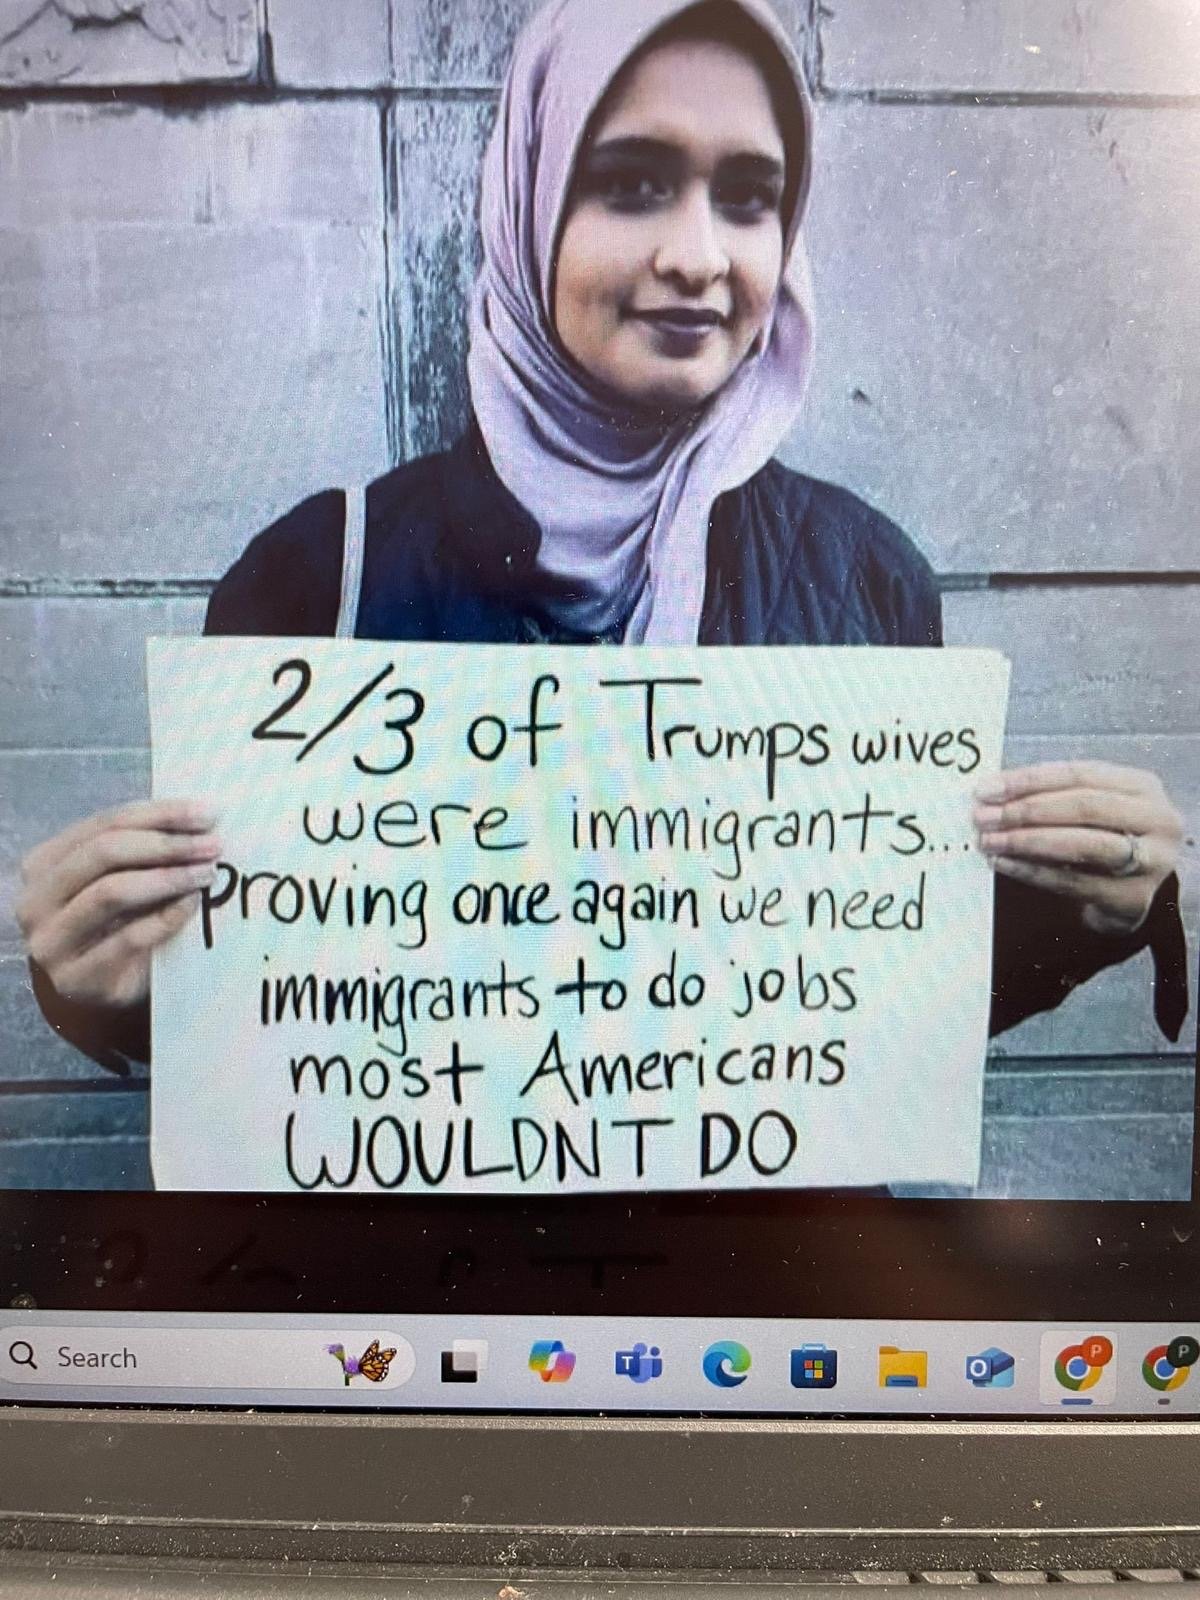 2/3 of Trumps wives
were immigrants...
proving once again we need
immigrants to do jobs
most Americans
WOULDNT DO
Search
T
O
P
P